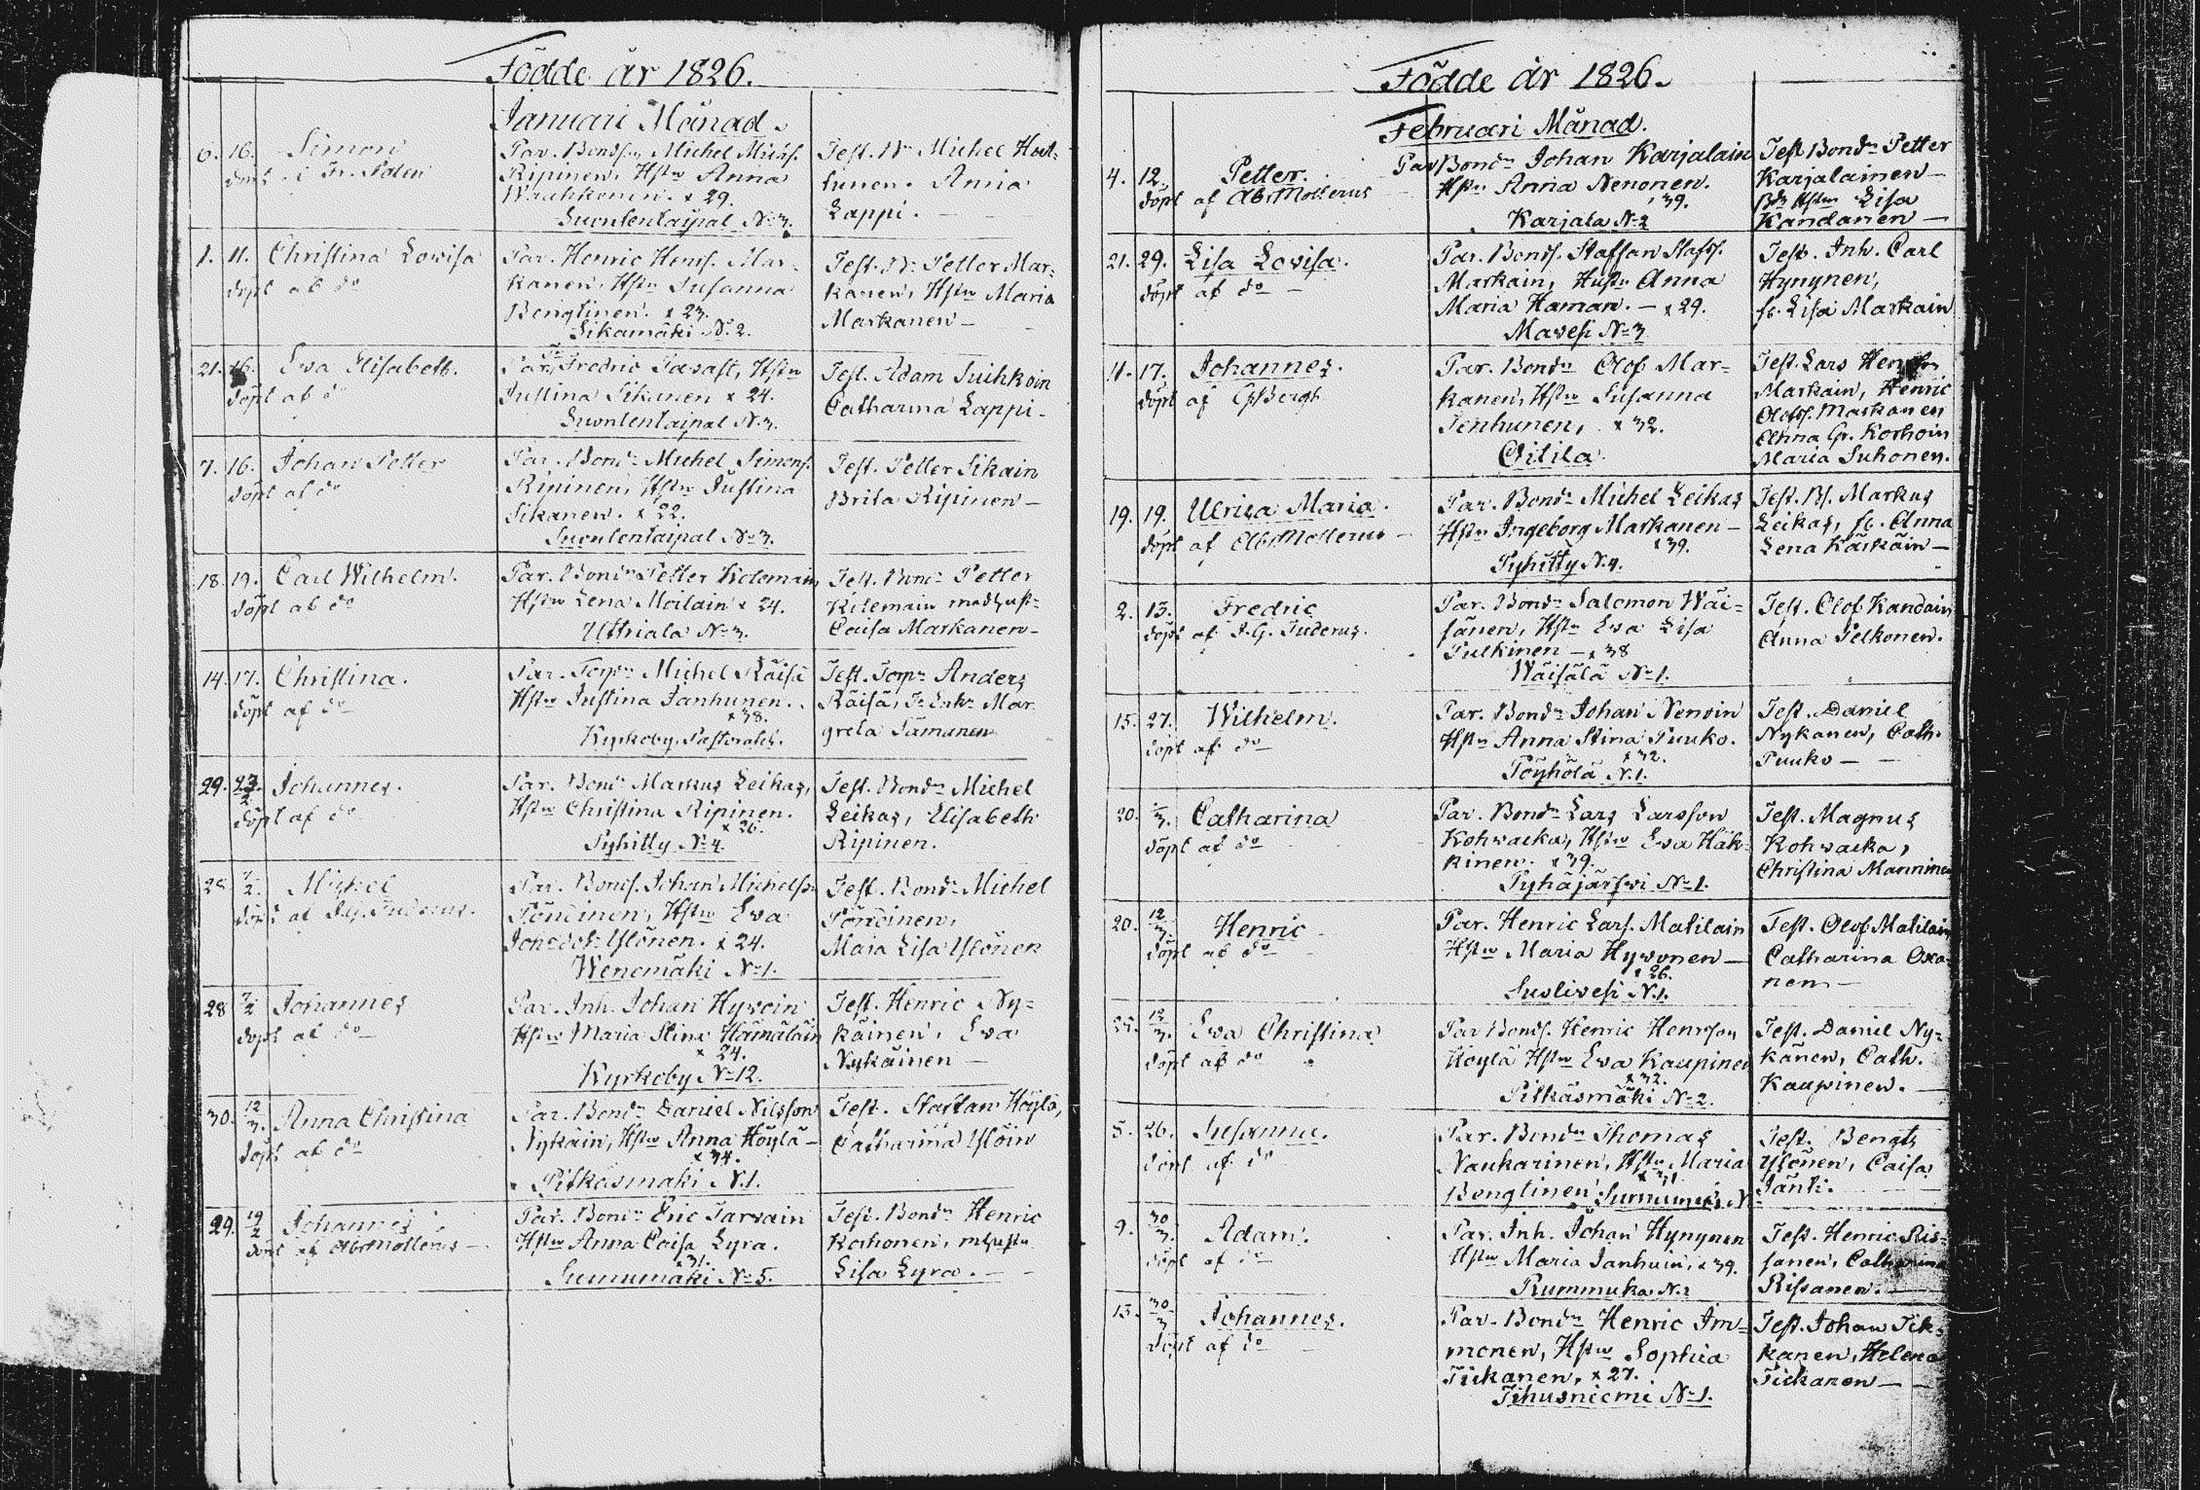 Födde år 1826.
Januari Månad.
6. 16. Simon
döpt
Par. Bonds. Michel Michs.
Ripinen, Hstr Anna
x 29.
Suontentaipal No 3.
Test. Michel Hart-
Anna
Lappi.
1. 11. Christina Lovisa
döpt af do
Par. Henric Henrs. Mar-
kanen, Hstr Susanna
Bengtinen. x 23.
Sikamäki No 2.
Test. Petter Mar-
kanen, Hstr Maria
Markanen —
21. 26. Eva Elisabeth.
döpt af do
Par. Fredric Tavast, Hstr
Justina Sikanen x 24.
Suontentaipal No 3.
Test. Adam Tuihkoin
Catharina Lappi-
7. 16. Johan Petter
döpt af do
Par. Bondn Michel Simons.
Ripinen, Hstr Justina
Sikanen. x 22.
Suontentaipal No 3.
Test. Petter Sikain
Brita Ripinen —
18. 19. Carl Wilhelm.
döpt af do
Par. Bondn Petter Kilemain
Hstr Lena Moilain x 24.
Uttriala No 3.
Test. Bondn Petter
Kilemain med hust-
Caisa Markanen-
14. 17. Christina.
döpt af do
Par. Torpn Michel Räisä
Hstr Justina Janhunen.
x 38.
Kyrkoby, Pastoratet.
Test. Torpn Anders
Räisä, Mar-
greta Tämänen
29. Johannes.
döpt af do
Par. Bondn Markus Leikas,
Hstr Christina Ripinen.
x 26.
Pyhitty No 4.
Test. Bondn Michel
Leikas, Elisabeth
Ripinen.
28. 7/2. Michel
döpt af J.G. Tuderus.
Par. Bonds. Johan Michelss.
Pöndinen, Hstr Eva
Johsdotr Ylönen. x 24.
Wenemäki No 1.
Test. Bondn Michel
Pöndinen,
Maia Lisa Ylönen
28 7/2 Johannes
döpt af do —
Par. Inh. Johan Hyvoin
Hstr Maria Stina Hämäläin
x 24.
Kyrkoby No 12.
Test. Henric Ny-
käinen, Eva
Nykäinen —
30. 12/3. Anna Christina
döpt af do
Par. Bondn Daniel Nilsson
Nykäin, Hstr Anna Höylä —
x 34.
Pitkäsmäki No 1.
Test. Staffan Höylä,
Catharina Ylöin
29. 19/2 Johannes
döpt af Abr Mollerus —
Par. Bondn Eric Tarvain
Hstr Anna Caisa Lyra.
x 31.
Surnumäki No 5.
Test. Bondn Henric
Korhonen, m hustr
Lisa Lyra. —
Födde år 1826.
Februari Månad.
4. 12. Petter.
döpt af Abr Mollerus
Par Bondn Johan Karjalain
Hstr Anna Nenonen.
x 39.
Karjala No 2
Test Bondn Petter
Karjalainen —
Hstrn Lisa
Kandanen —
21. 29. Lisa Lovisa.
döpt af do —
Par. Bonds. Staffan Staffs.
Markain, Hustr Anna
Maria Haman. — x 29.
Mavesi No 3
Test. Inh. Carl
Hynynen,
Lisa Markain
11. 17. Johannes.
döpt af Bergh
Par. Bondn Olof Mar-
kanen, Hstr Susanna
Tenhunen, x 32.
Oitila.
Test. Lars Henrs.
Markain, Henric
Olofss. Markanen
Anna Gr. Korhoin
Maria Suhonen.
19. 19. Ulrica Maria.
döpt af Abr Mollerus —
Par. Bondn Michel Leikas
Hstr Ingeborg Markanen —
x 39.
Pyhitty No 4.
Test. Markus
Leikas, Anna
Lena Käskäin —
2. 13. Fredric
döpt af J.G. Tuderus.
Par. Bondn Salomon Wäi-
sänen, Hstr Eva Lisa
Pulkinen — x 38
Wäisälä No 1.
Test. Olof Kandain
Anna Pelkonen.
15. 27. Wilhelm.
döpt af do —
Par. Bondn Johan Nenoin
Hstr Anna Stina Puuko.
x 32.
Pöyhölä No 1.
Test. Daniel
Nykanen, Cath.
Puuko —
20. Catharina
döpt af do
Par. Bondn Lars Larsson
Kohvacka, Hstr Eva Häk-
kinen. x 39.
Pyhäjärfwi No 1.
Test. Magnus
Kohvacka,
Christina Manninen
20. 12/3. Henric
döpt af do
Par. Henric Lars. Matilain
Hstr Maria Hyvonen —
x 26.
Suolivesi No 1.
Test. Olof Matilain
Catharina Oxa-
nen —
12/3. Eva Christina
döpt af do
Par Bonds. Henric Henrsson
Höylä Hstr Eva Kaupinen
x 32.
Pitkäsmäki No 2.
Test. Daniel Ny-
känen, Cath.
Kaupinen.
5. 26. Susanna.
döpt af do
Par. Bondn Thomas
Naukarinen, Hstr Maria
x 31
Bengtinen, Surnumäki No
Test. Bengts
Ylönen, Caisa
Jänti.
9. 30/3. Adam.
döpt af do
Par. Inh. Johan Hynynen
Hstr Maria Janhuin, x 39.
Rummuka No 2
Test. Henric Ris-
sanen, Catharina
Rissanen. —
13. 30/3 Johannes.
döpt af do
Par. Bondn Henric Im-
monen, Hstr Sophia
Tickanen, x 27.
Tihusniemi No 1.
Test. Johan Tik-
kanen, Helena
Tickanen —